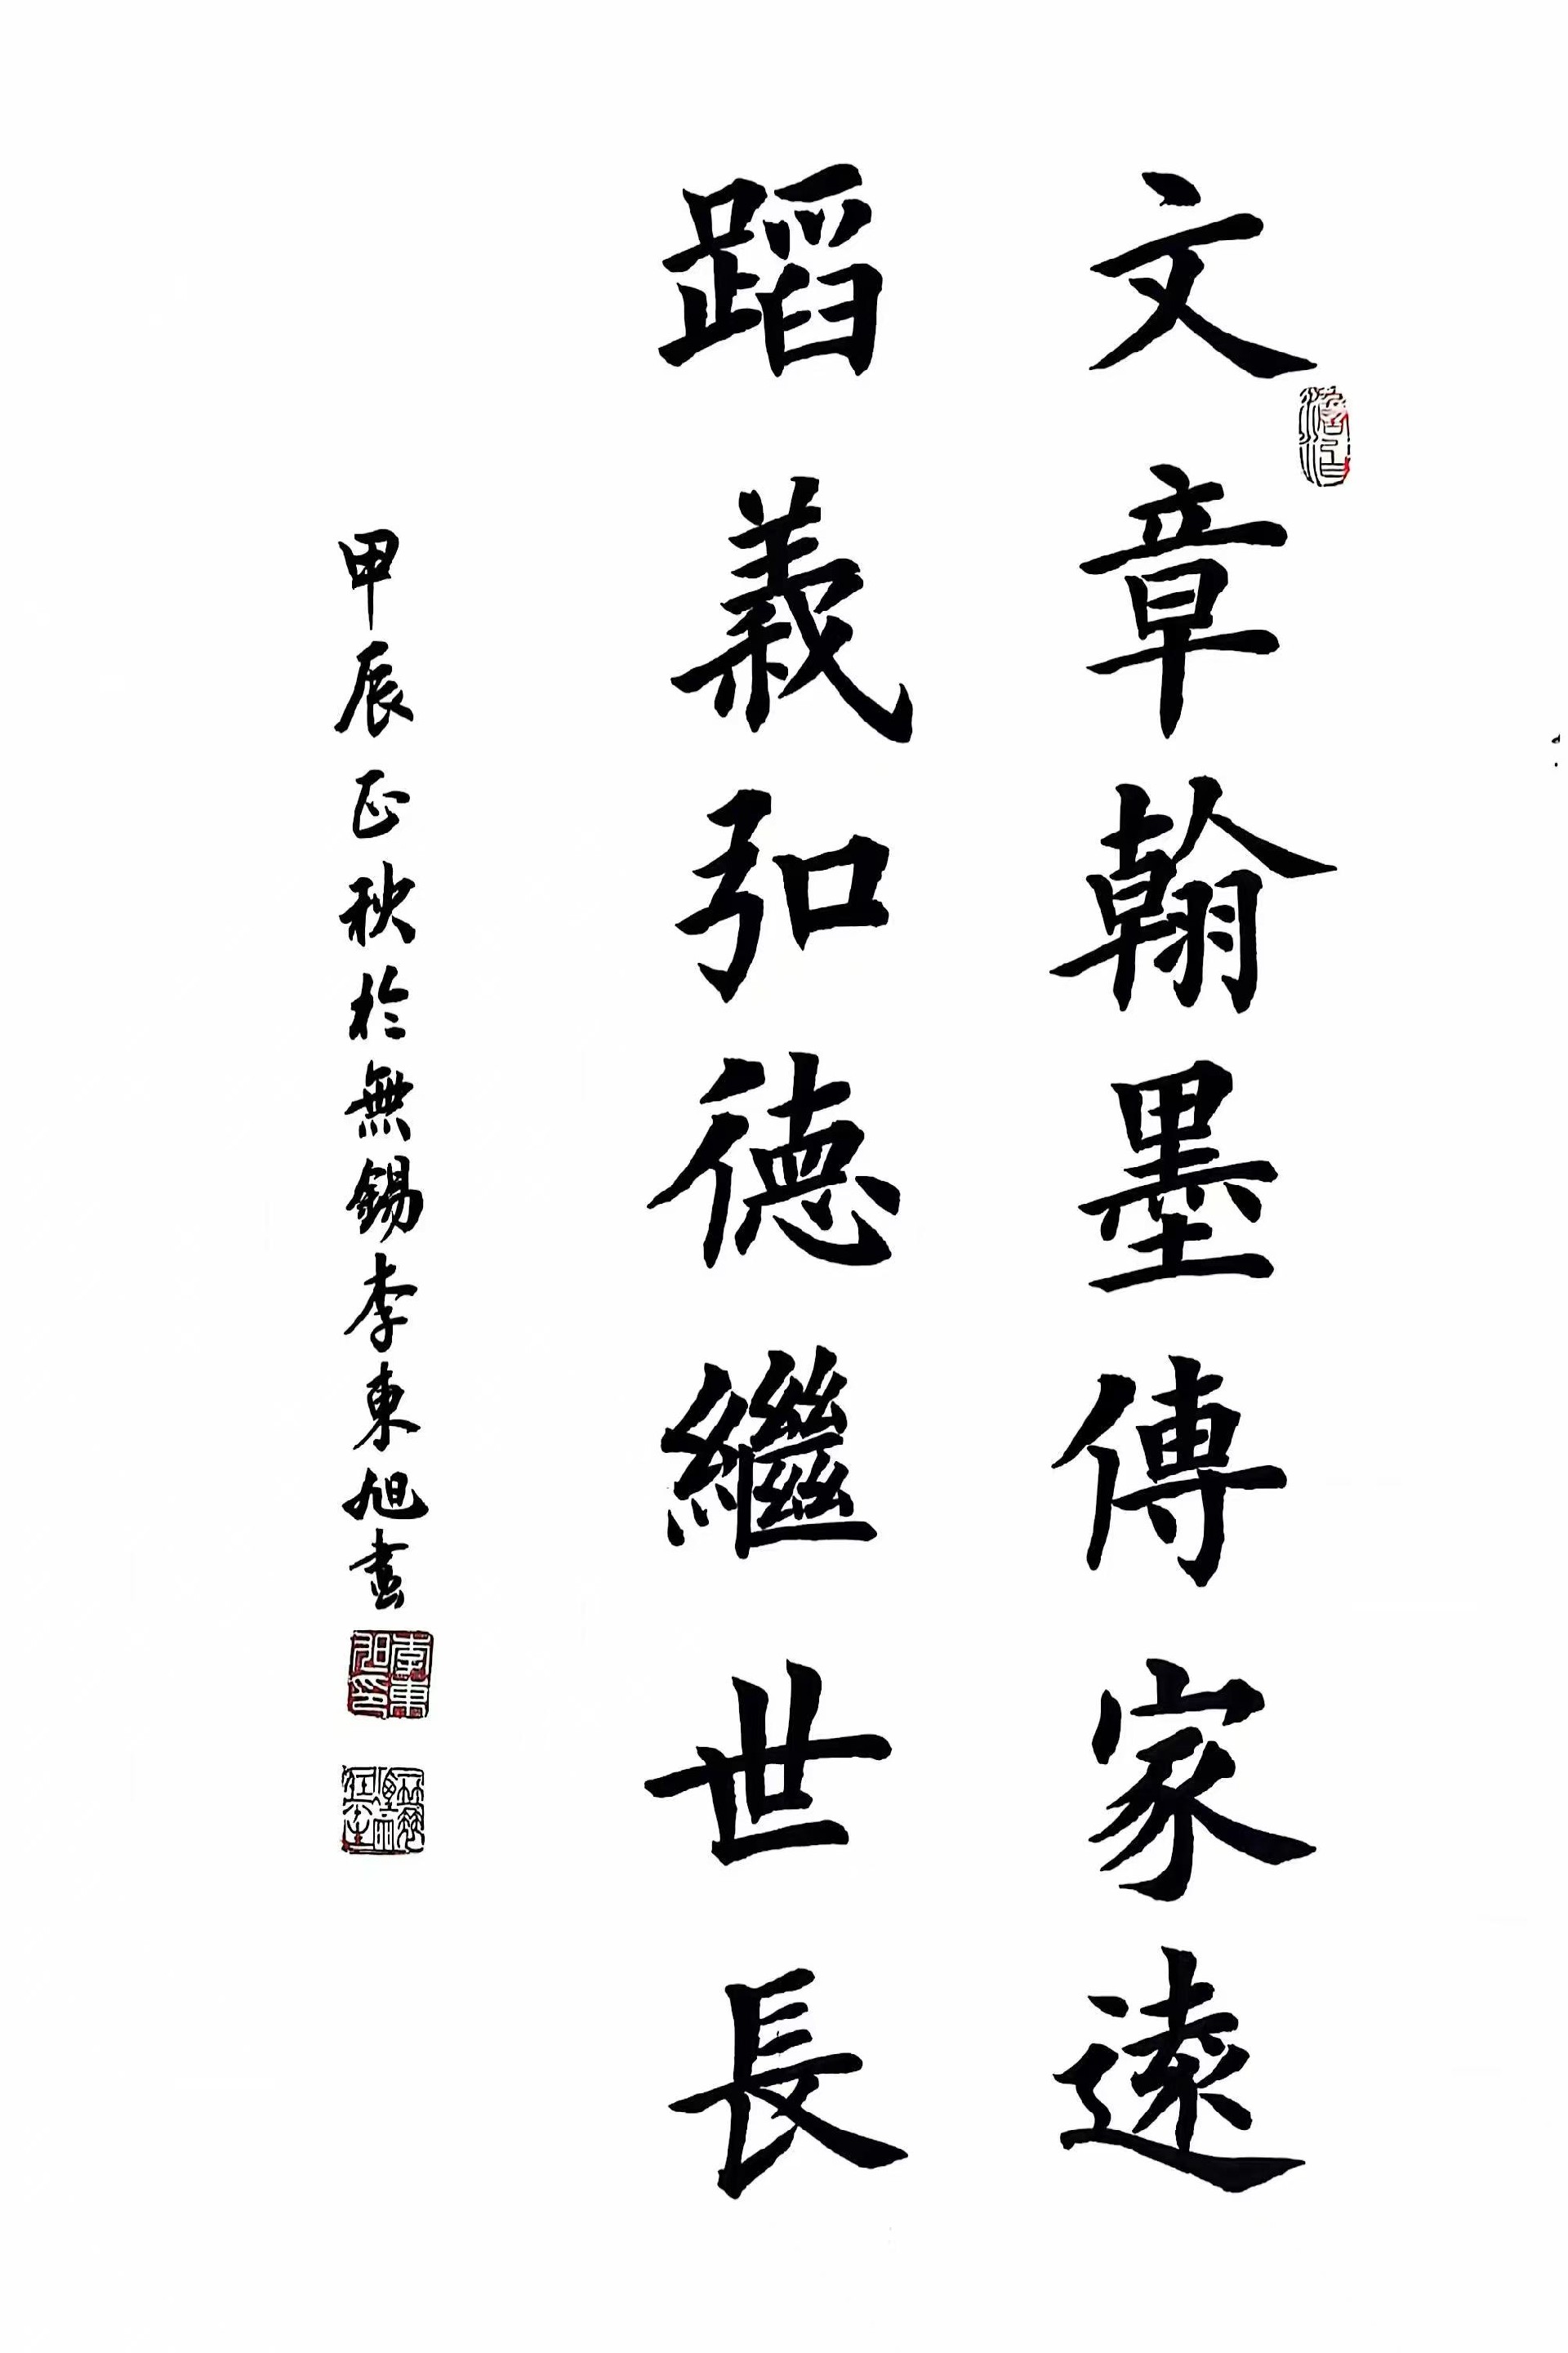 文章翰墨傳家遠
蹈義弘德繼世長
甲辰正秋於無錫李東旭書
李東旭印